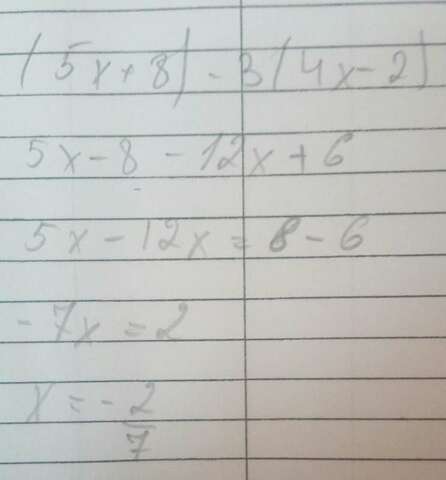 (5x+8)-3(4x-2)
5x-8-12x+6
5x-12x=8-6
-7x=2
x=-2/7